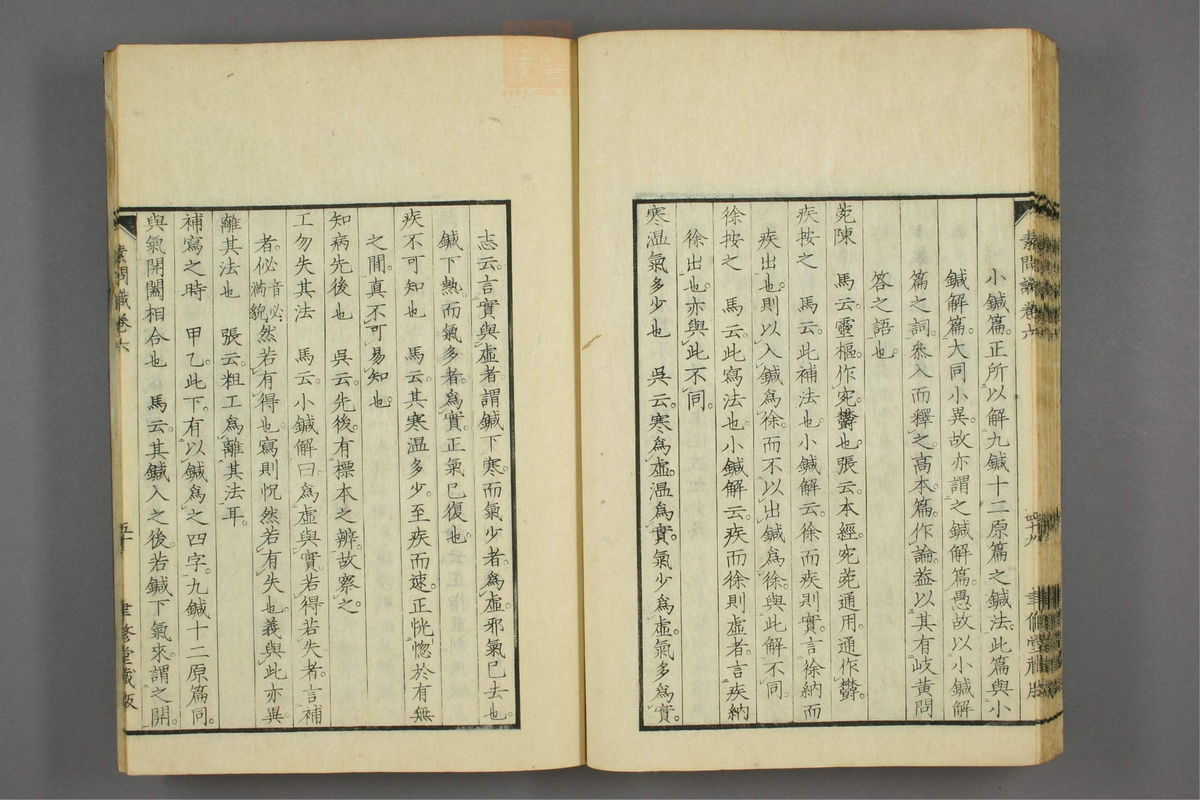 小鍼篇正所以解九鍼十二原篇之鍼法此篇與小
鍼解篇大同小異故亦謂之鍼解篇愚故以小鍼解
篇之詞叅入而釋之高本篇作論葢以其有岐黃問
答之語也
菀陳　馬云靈樞作宛鬱也張云本經宛菀通用通作鬱
疾按之　馬云此補法也小鍼解云徐而疾則實言徐納而
疾出也則以入鍼爲徐而不以出鍼爲徐與此解不同
徐按之　馬云此寫法也小鍼解云疾而徐則虛者言疾納
徐出也亦與此不同
寒温氣多少也　吳云寒爲虛温爲實氣少爲虛氣多爲實
素問識卷六
聿脩堂藏版
志云言實與虛者謂鍼下寒而氣少者爲虛邪氣已去也
鍼下熱而氣多者爲實正氣已復也
疾不可知也　馬云其寒温多少至疾而速正恍惚於有無
之間真不可易知也
知病先後也　吳云先後有標本之辨故察之
工勿失其法　馬云小鍼解曰爲虛與實若得若失者言補
者佖音必滿貌然若有得也寫則怳然若有失也義與此亦異
離其法也　張云粗工爲離其法耳
補寫之時　甲乙此下有以鍼爲之四字九鍼十二原篇同
與氣開闔相合也　馬云其鍼入之後若鍼下氣來謂之開
素問識卷六
五十
聿修堂藏版